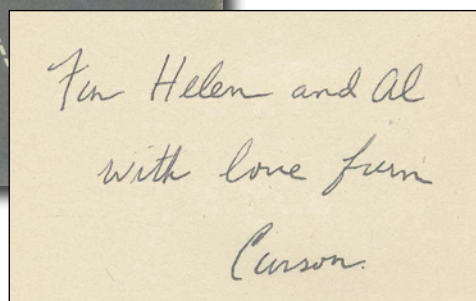 For Helen and Al
with love from
Carson.